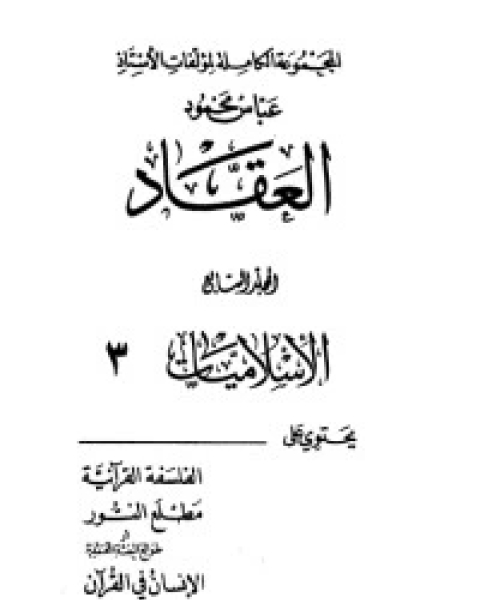 المجموعة الكاملة لمؤلفات الأستاذ
عباس محمود
العقاد
المجلد السابع
الإسلاميات ٣
يحتوي على
الفلسفة القرآنية
مطلع النور
أو
طوالع البعثة المحمدية
الإنسان في القرآن